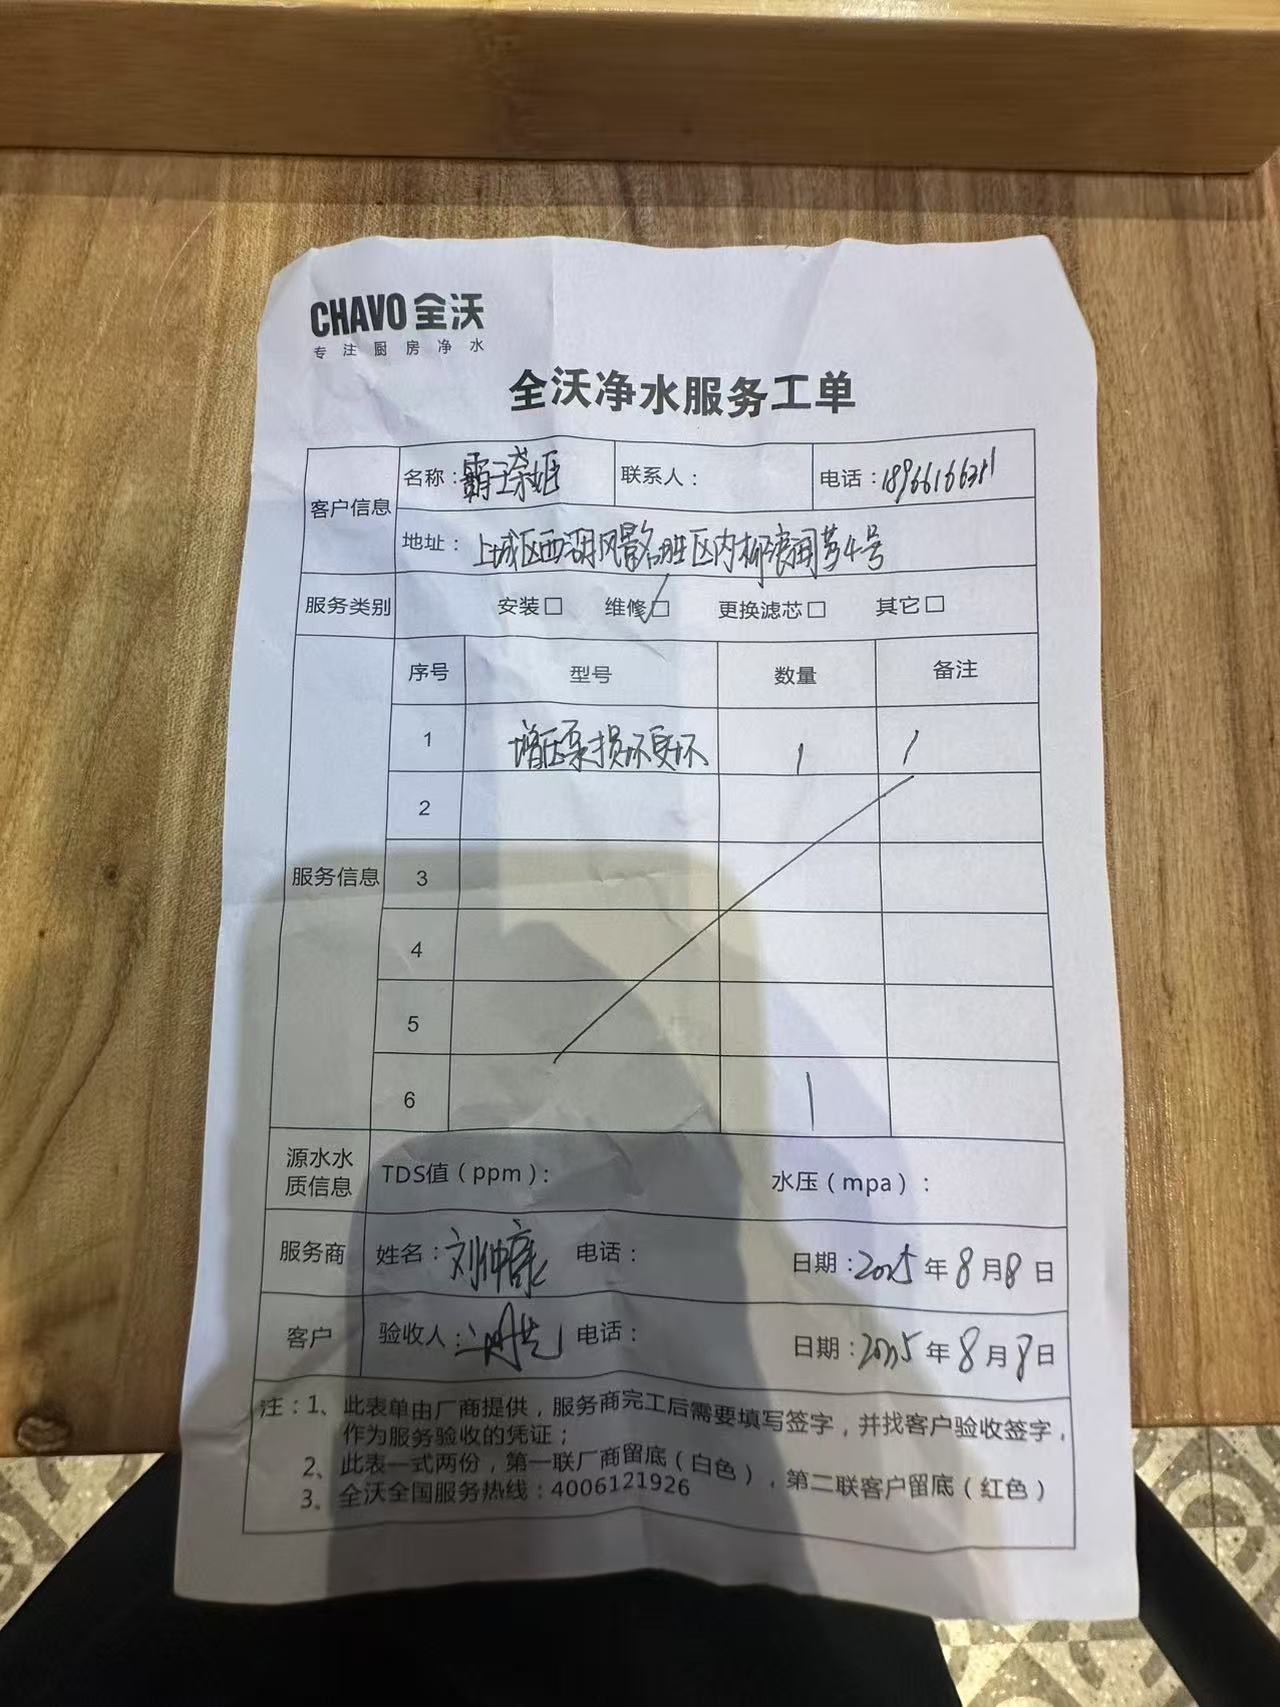 CHAVO 全沃
专注厨房净水
全沃净水服务工单
客户信息
名称：霸王茶姬 联系人： 电话：
地址：上城区西湖风景名胜区内柳浪闻莺4号
服务类别 安装□ 维修□ 更换滤芯□ 其它□
服务信息
序号 型号 数量 备注
1 增压泵损坏 1
2
3
4
5
6
源水水质信息 TDS值（ppm）： 水压（mpa）：
服务商 姓名：刘仲 电话： 日期：2025年8月8日
客户 验收人： 电话： 日期：2025年8月8日
注：1、此表单由厂商提供，服务商完工后需要填写签字，并找客户验收签字，
作为服务验收的凭证；
2、此表一式两份，第一联厂商留底（白色），第二联客户留底（红色）
3、全沃全国服务热线：4006121926